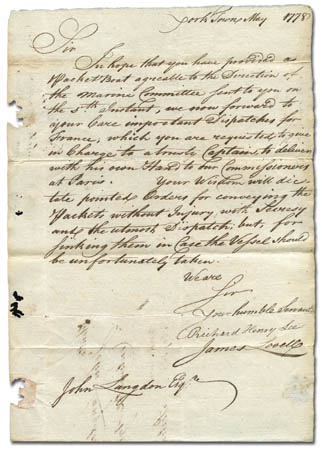 York Town May 1778
Sir
In hope that you have provided a
Packet Boat agreable to the Direction of
the Marine Committee sent to you on
the 5th Instant, we now forward to
your Care important Dispatches for
France, which you are requested to give
in Charge to a Captain to deliver
with his own Hand to our Commissioners
at Paris. Your Wisdom will dic
tate pointed Orders for conveying the
Packets without Injury with
and the utmost Dispatch; but, for
sinking them in Case the Vessel should
be unfortunately taken.
We are
Sir
Your humble Servants
Richard Henry Lee
James Lovell
John Langdon Esqre